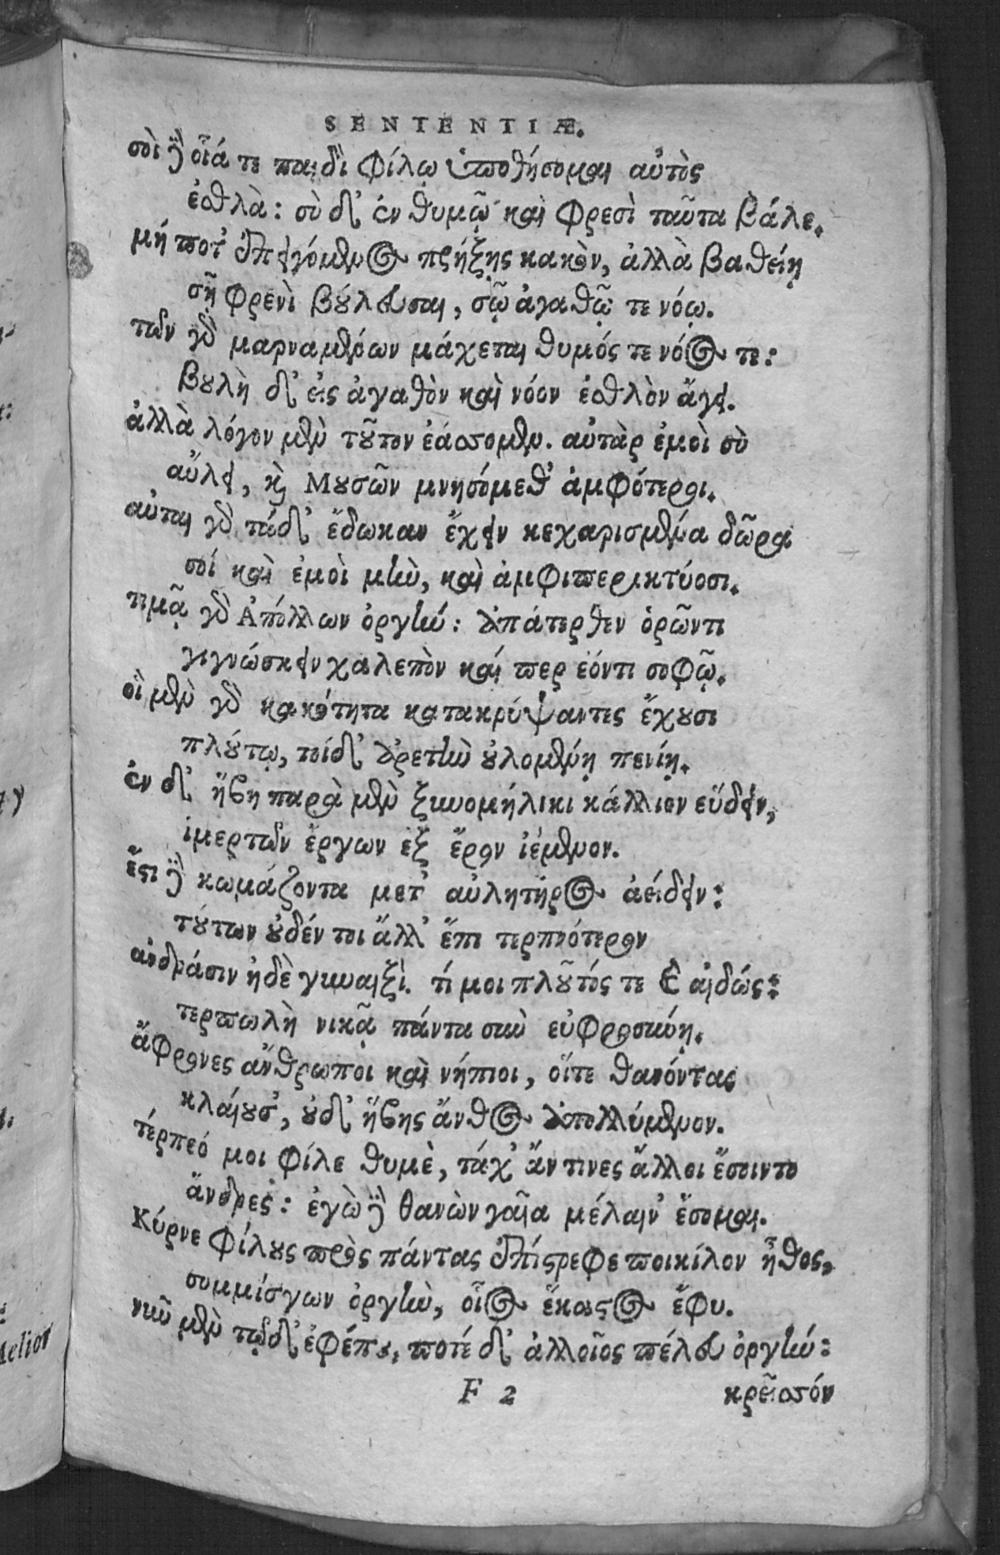 SENTENTIÆ.
σοὶ δ' οἷά τε παιδὶ φίλῳ ὑποθήσομαι αὐτὸς
ἐσθλὰ: σὺ δ' ἐν θυμῷ καὶ φρεσὶ ταῦτα βάλε.
μή ποτ' ἐπειγόμενος πρήξῃς κακὸν, ἀλλὰ βαθείῃ
σῇ φρενὶ βούλευσαι, σῷ ἀγαθῷ τε νόῳ.
τῶν γὰρ μαρναμένων μάχεται θυμός τε νόος τε:
βουλὴ δ' εἰς ἀγαθὸν καὶ νόον ἐσθλὸν ἄγει.
ἀλλὰ λόγον μὲν τοῦτον ἐάσσομεν. αὐτὰρ ἐμοὶ σὺ
αὔλει, καὶ Μουσῶν μνησόμεθ' ἀμφότεροι.
αὗται γὰρ τάδ' ἔδωκαν ἔχειν κεχαρισμένα δῶρα
σοί καὶ ἐμοὶ μὴν, καὶ ἀμφιπερικτύοσι.
τιμᾷ γὰρ Ἀπόλλων ὀργήν: ἀπάτερθεν ὁρῶντι
γιγνώσκειν χαλεπὸν καί περ ἐόντι σοφῷ.
οἱ μὲν γὰρ κακότητα κατακρύψαντες ἔχουσι
πλούτῳ, τοίδ' ἀρετὴν οὐλομένῃ πενίῃ.
ἐν δ' ἥβῃ παρὰ μὲν ξυνομήλικι κάλλιον εὕδειν,
ἱμερτῶν ἔργων ἐξ ἔρον ἱέμενον.
ἔστι δὲ κωμάζοντα μετ' αὐλητῆρος ἀείδειν:
τούτων οὐδέν τοι ἄλλ' ἔπι τερπνότερον
ἀνδράσιν ἠδὲ γυναιξὶ. τί μοι πλοῦτός τε καὶ αἰδώς:
τερπωλὴ νικᾷ πάντα σὺν εὐφροσύνῃ.
ἄφρονες ἄνθρωποι καὶ νήπιοι, οἵτε θανόντας
κλαίουσ', οὐδ' ἥβης ἄνθος ἀπολλύμενον.
τέρπεό μοι φίλε θυμὲ, τάχ' ἄν τινες ἄλλοι ἔσοιντο
ἄνδρες: ἐγὼ δὲ θανὼν γαῖα μέλαιν' ἔσομαι.
Κύρνε φίλους πρὸς πάντας ἐπίστρεφε ποικίλον ἦθος,
συμμίσγων ὀργὴν, οἷος ἕκαστος ἔφυ.
νῦν μὲν τῷδ' ἐφέπου, ποτέ δ' ἀλλοῖος πέλευ ὀργήν:
F 2
κρεῖσσόν